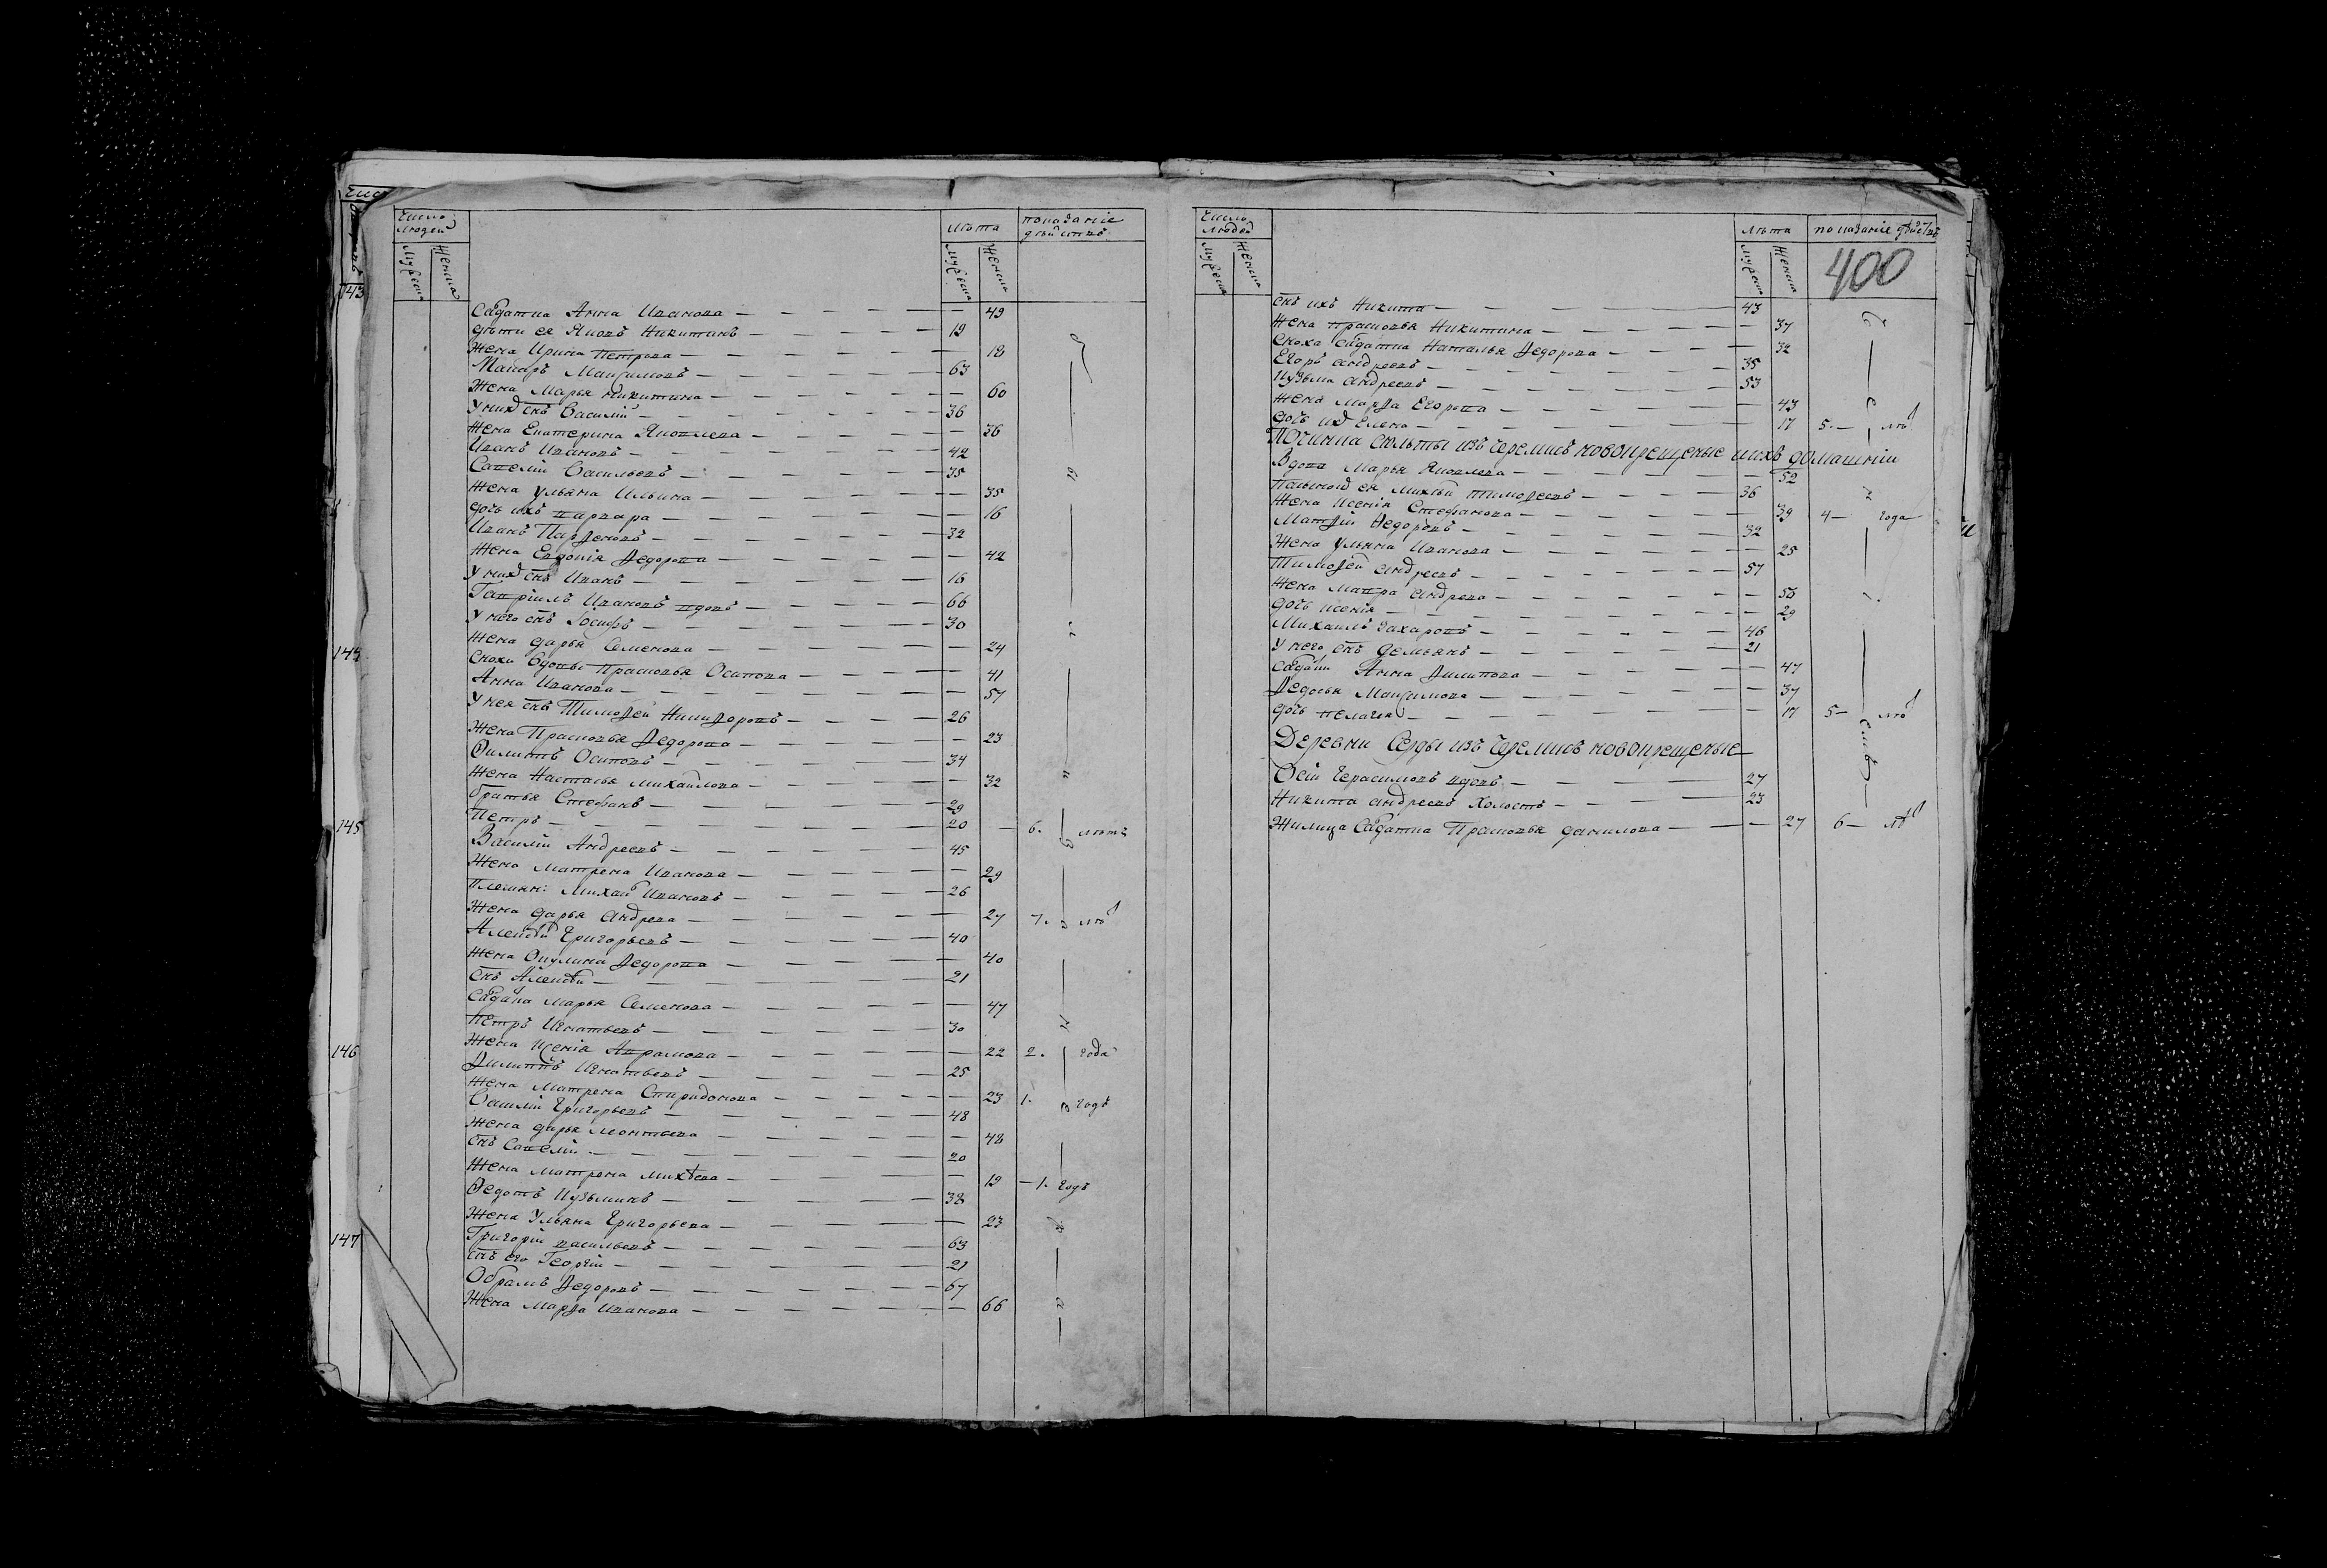 Число людей
лѣта
показаніе дѣйствъ
Мужеска
Женска
Мужеска
Женска
143
салдатка Анна Иванова — 49
дѣти ея Яковъ Никитинъ — 19
Жена Ирина Петрова — 18
Макаръ Максимовъ — 63
Жена Марья Никитина — 60
У них снъ Василій — 36
Жена Екатерина Яковлева — 36
Иванъ Ивановъ — 42
Савелій Васильевъ — 35
Жена Ульяна Ильина — 35
дочь ихъ варвара — 16
Иванъ Парѳеновъ — 32
Жена Евдокія Ѳедорова — 42
У них снъ Иванъ — 16
Гавріилъ Ивановъ вдовъ — 66
У него снъ Іосифъ — 30
144
Жена дарья Семенова — 24
Снохи вдовы Прасковья Осипова — 41
Анна Иванова — 57
У нея снъ Тимоѳей Никифоровъ — 26
Жена Прасковья Ѳедорова — 23
Филиппъ Осиповъ — 34
Жена Наталья Михайлова — 32
братья Стефанъ — 29
Петръ — 20 — 6. лѣтъ
145
Василій Андреевъ — 45
Жена Матрена Иванова — 29
Племян: Михаи Ивановъ — 26
Жена дарья Андреева — 27 7. лѣ
Алексѣй Григорьевъ — 40
Жена Окулина Ѳедорова — 40
снъ Алексѣй — 21
Салдатка Марья Семенова — 47
Петръ Игнатьевъ — 30
146
Жена Ксенія Аврамова — 22 2. года
Филиппъ Игнатьевъ — 25
Жена Матрена Спиридонова — 23 1. годъ
Василій Григорьевъ — 48
Жена дарья Леонтьева — 48
снъ Савелій — 20
Жена Матрена Михѣева — 19 — 1. годъ
Ѳедотъ Кузьминъ — 38
Жена Ульяна Григорьева — 23
147
Григорій васильевъ — 63
снъ его Георгій — 21
Обрамъ Ѳедоровъ — 67
Жена Марѳа Иванова — 66
Число людей
лѣта
показаніе дѣйствъ
Мужеска
Женска
Мужеска
Женска
400
снъ ихъ Никита — 43
Жена прасковья Никитина — 37
Сноха салдатка Наталья Ѳедорова — 32
Егоръ андреевъ — 35
Кузьма андреевъ — 53
Жена Марѳа Егорова — 43
дочь их Елена — 17 5. — лѣ
Починка из черемисъ новокрещеные и ихъ домашніи
Вдова Марья Яковлева — 52
ея Михѣй тимоѳеевъ — 36
Жена Ксенія Стефанова — 39 4 — года
Матѳій Ѳедоровъ — 32
Жена Ульяна Иванова — 25
Тимоѳей андреевъ — 57
Жена Мавра андреева — 53
дочь ксенія — 29
Михаилъ Захаровъ — 46
У него снъ демьянъ — 21
салдатки Анна Филипова — 47
Ѳедосья Максимова — 37
дочь пелагея — 17 5 — лѣ
Деревни Серды изъ черемисъ новокрещеные
Осій Герасимовъ вдовъ — 27
Никита андреевъ холостъ — 23
Жилица Салдатка Прасковья данилова — 27 6 — лѣ